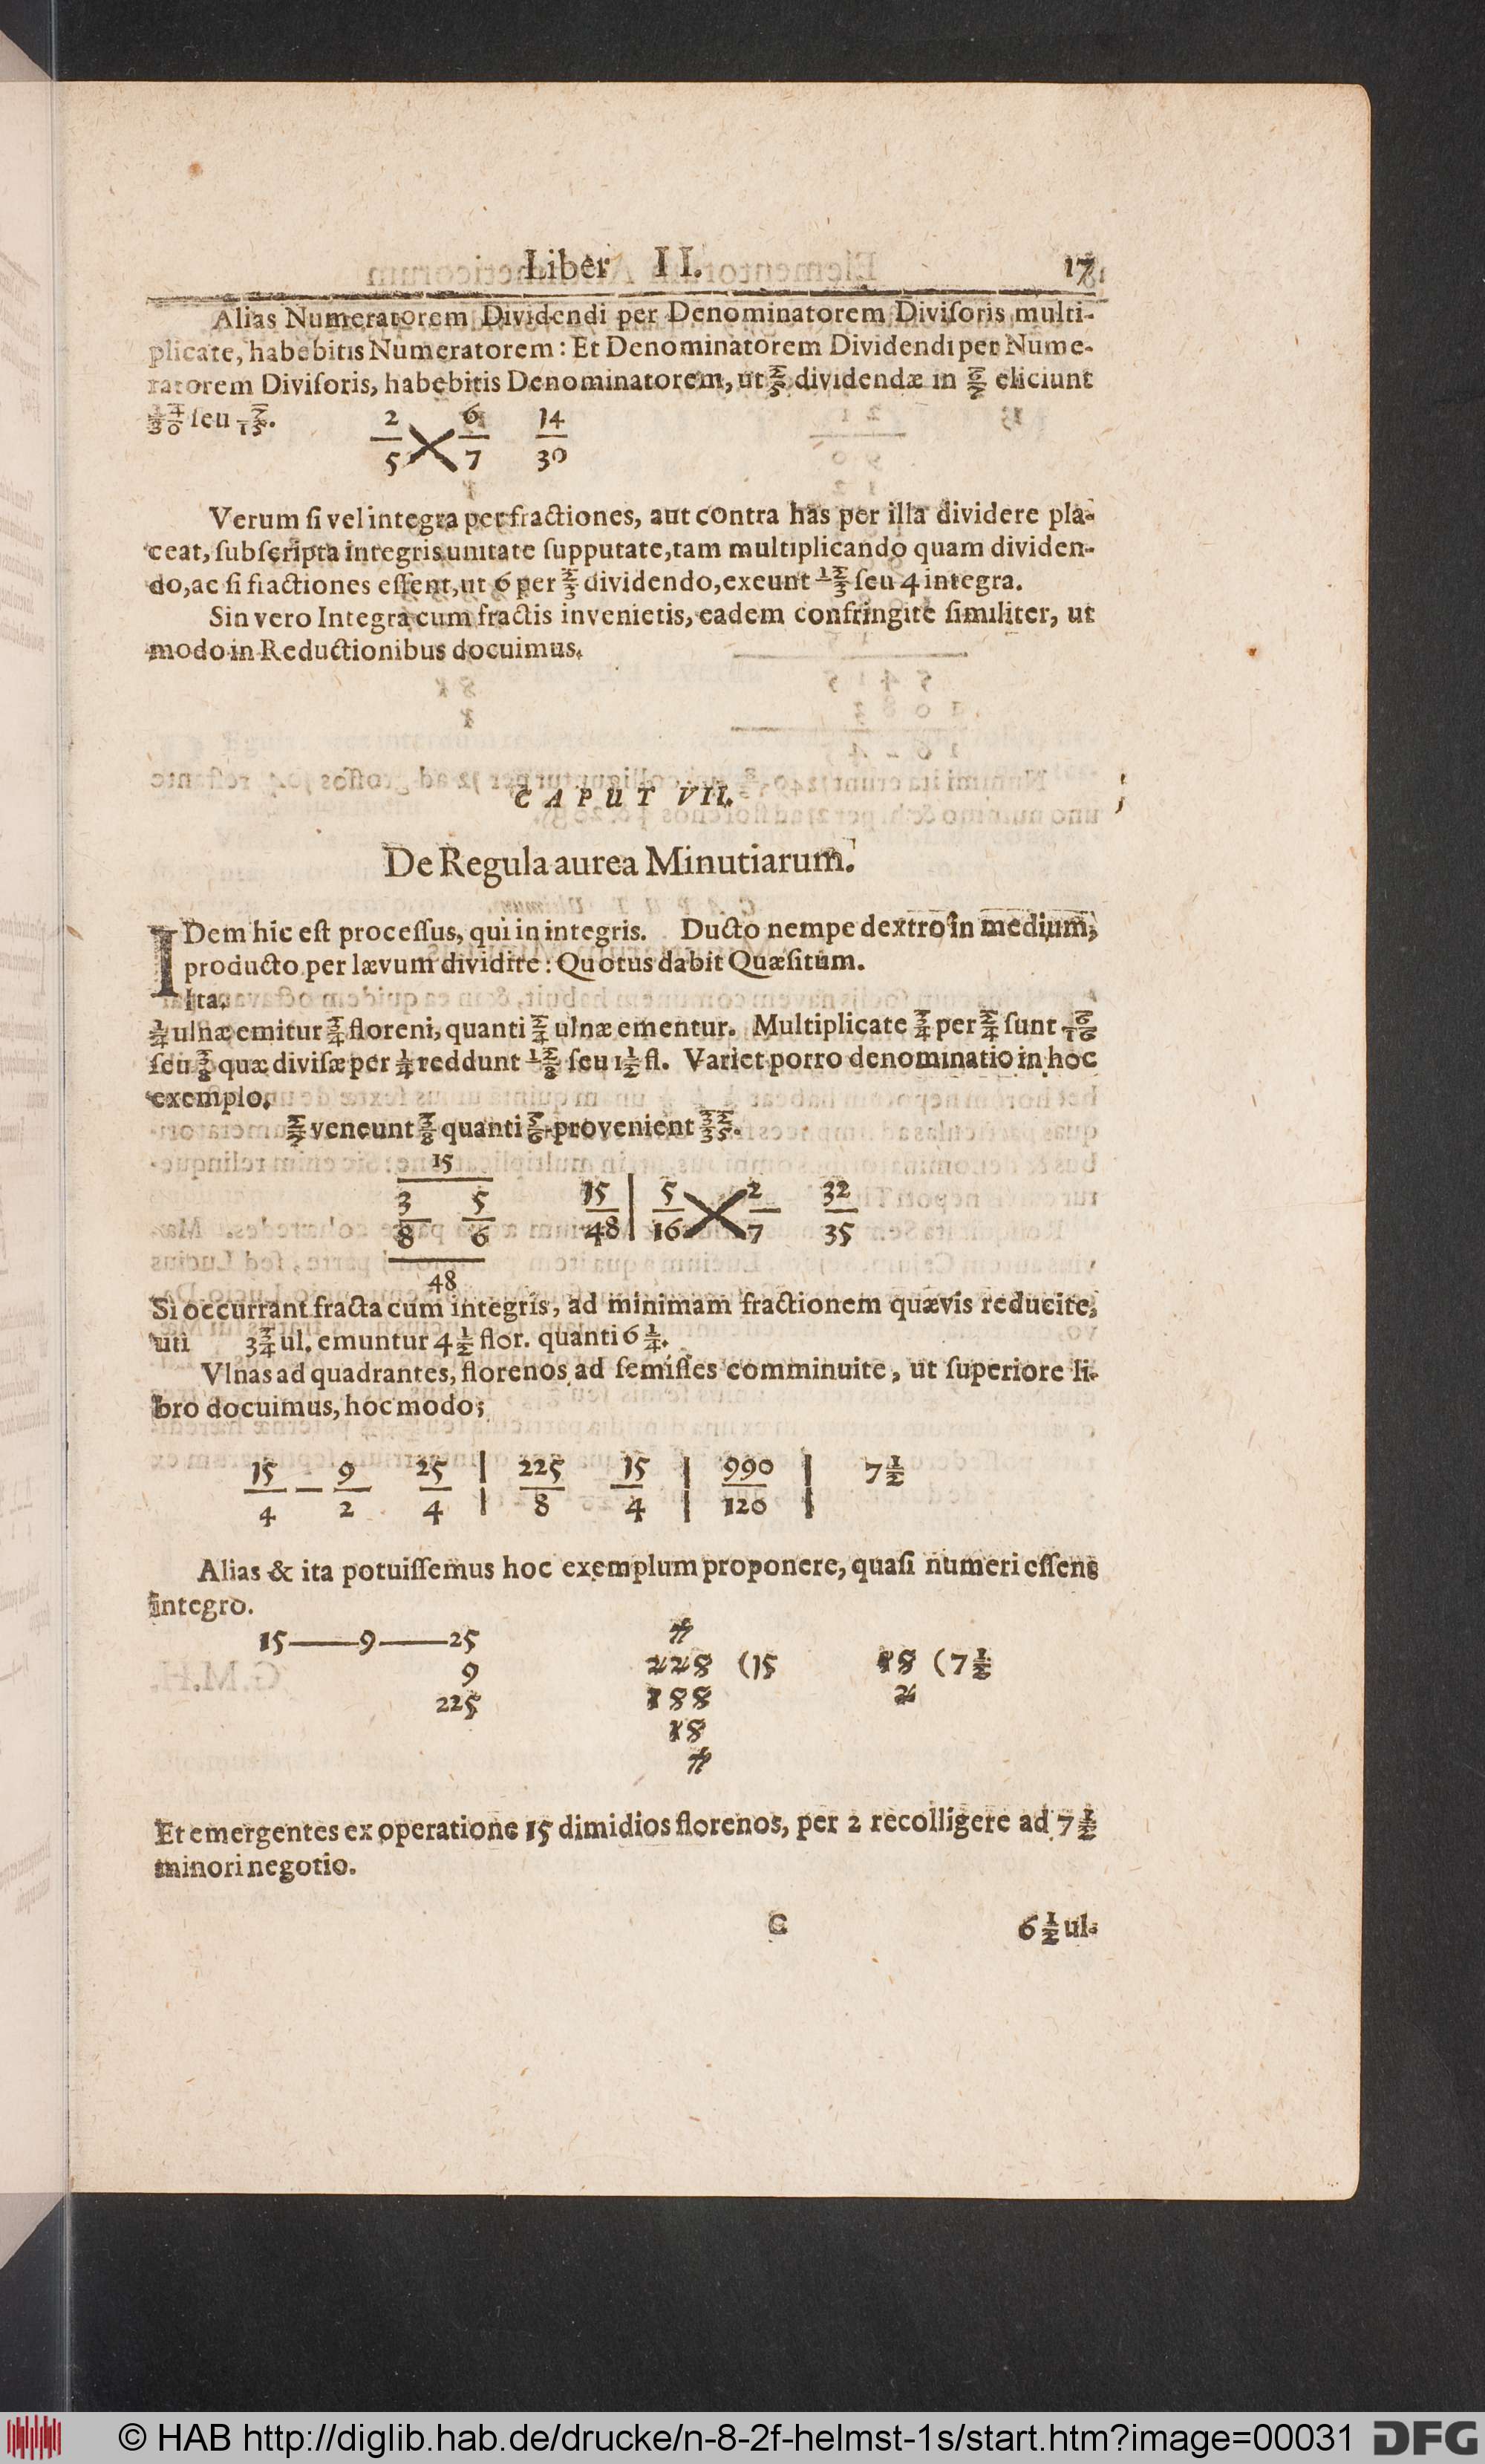 Liber II. 17
Alias Numeratorem Dividendi per Denominatorem Diviſoris multi-
plicate, habebitis Numeratorem: Et Denominatorem Dividendi per Nume-
ratorem Diviſoris, habebitis Denominatorem, ut 2/5 dividendæ in 6/7 eliciunt
14/30 ſeu 7/15.
2 6 14
5 7 30
Verum ſi vel integra per fractiones, aut contra has per illa dividere pla-
ceat, ſubſcripta integris unitate ſupputate, tam multiplicando quam dividen-
do, ac ſi fractiones eſſent, ut 6 per 2/3 dividendo, exeunt 12/3 ſeu 4 integra.
Sin vero Integra cum fractis invenietis, eadem confringite ſimiliter, ut
modo in Reductionibus docuimus.
CAPUT VII.
De Regula aurea Minutiarum.
IDem hic eſt proceſſus, qui in integris. Ducto nempe dextro in medium,
producto per lævum dividite: Quotus dabit Quæſitum.
Ita.
1/4 ulnæ emitur 3/4 floreni, quanti 2/4 ulnæ ementur. Multiplicate 3/4 per 2/4 ſunt 6/16
ſeu 3/8 quæ diviſæ per 1/4 reddunt 12/8 ſeu 1 1/2 fl. Variet porro denominatio in hoc
exemplo.
2/7 veneunt 3/8 quanti 5/6 provenient 32/35.
15
3 5 15 | 5 2 32
8 6 48 | 16 7 35
48
Si occurrant fracta cum integris, ad minimam fractionem quævis reducite,
uti 3 3/4 ul. emuntur 4 1/2 flor. quanti 6 1/4.
Vlnas ad quadrantes, florenos ad ſemiſſes comminuite, ut ſuperiore li-
bro docuimus, hoc modo;
15 — 9 25 | 225 15 | 990 | 7 1/2
4 2 4 | 8 4 | 120 |
Alias & ita potuiſſemus hoc exemplum proponere, quaſi numeri eſſent
integro.
15——9——25
9 (15 (7 1/2
225
Et emergentes ex operatione 15 dimidios florenos, per 2 recolligere ad 7 1/2
minori negotio.
C 6 1/2 ul.
© HAB http://diglib.hab.de/drucke/n-8-2f-helmst-1s/start.htm?image=00031 DFG